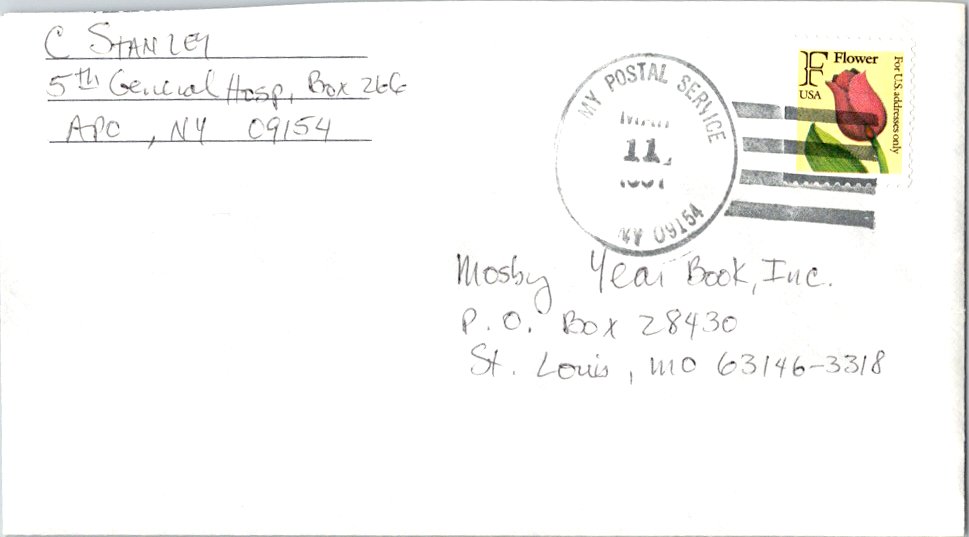 C STANLEY
5th General Hosp, Box 266
APO, NY 09154
MY POSTAL SERVICE
MAR
11
1991
NY 09154
F Flower
USA
For U.S. addresses only
Mosby Year Book, Inc.
P.O. Box 28430
St. Louis, MO 63146-3318